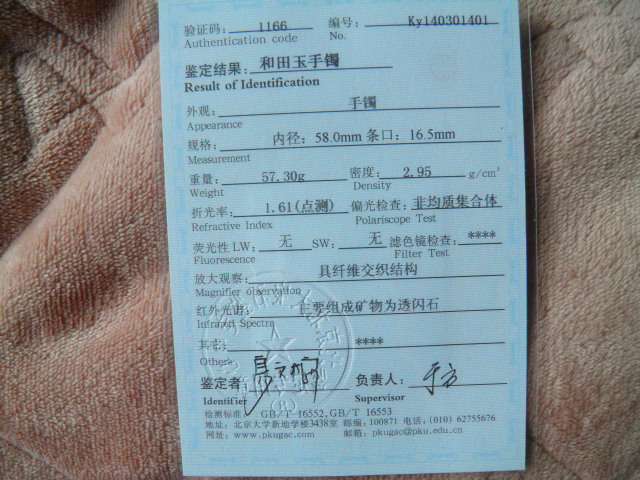 验证码: 1166 编号: Ky140301401
Authentication code No.
鉴定结果: 和田玉手镯
Result of Identification
外观: 手镯
Appearance
规格: 内径: 58.0mm 条口: 16.5mm
Measurement
重量: 57.30g 密度: 2.95 g/cm³
Weight Density
折光率: 1.61(点测) 偏光检查: 非均质集合体
Refractive Index Polariscope Test
荧光性 LW: 无 SW: 无 滤色镜检查: ****
Fluorescence Filter Test
放大观察: 具纤维交织结构
Magnifier observation
红外光谱: 主要组成矿物为透闪石
Infrared Spectra
其它: ****
Others
鉴定者: 负责人:
Identifier Supervisor
检测标准: GB/T 16552, GB/T 16553
地址: 北京大学新地学楼3438室 邮编: 100871 电话: (010) 62755676
网址: www.pkugac.com 邮箱: pkugac@pku.edu.cn